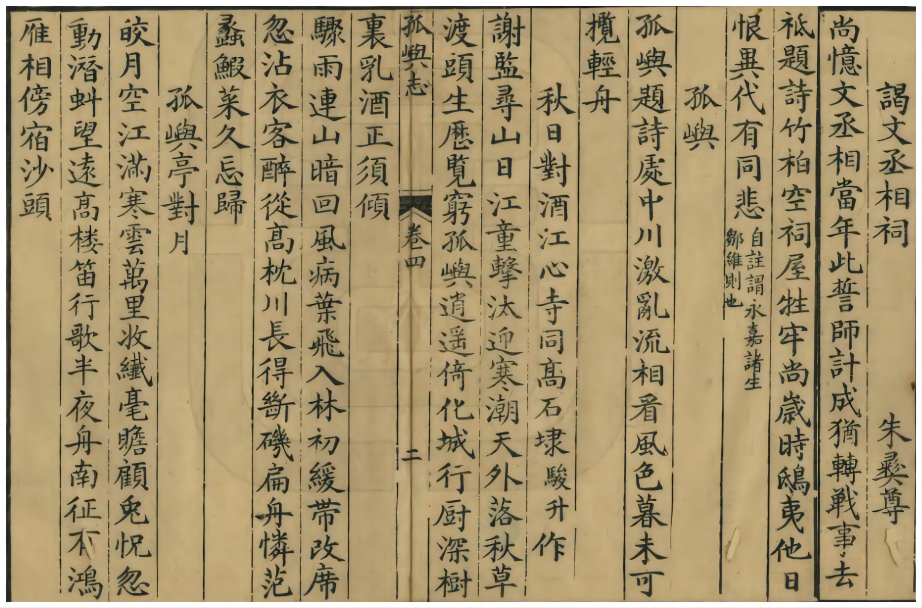 謁文丞相祠　朱彝尊
尚憶文丞相當年此誓師計成猶轉戰事去
祗題詩竹柏空祠屋牲牢尚歲時鴟夷他日
恨異代有同悲自註謂永嘉諸生鄒維則也
孤嶼
孤嶼題詩處中川激亂流相看風色暮未可
攬輕舟
秋日對酒江心寺同高石埭駿升作
謝監尋山日江童擊汰迎寒潮天外落秋草
渡頭生歷覽窮孤嶼逍遥倚化城行厨深樹
孤嶼志　卷四　二
裏乳酒正須傾
驟雨連山暗回風病葉飛入林初緩帶改席
忽沾衣客醉從高枕川長得斷磯扁舟憐范
蠡鰕菜久忘歸
孤嶼亭對月
皎月空江滿寒雲萬里收纖毫瞻顧兎怳忽
動潛虯望遠高楼笛行歌半夜舟南征有鴻
雁相傍宿沙頭